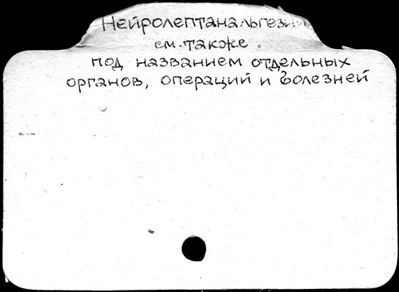 Нейролептанальгези
см. также
под названием отдельных
органов, операций и болезней